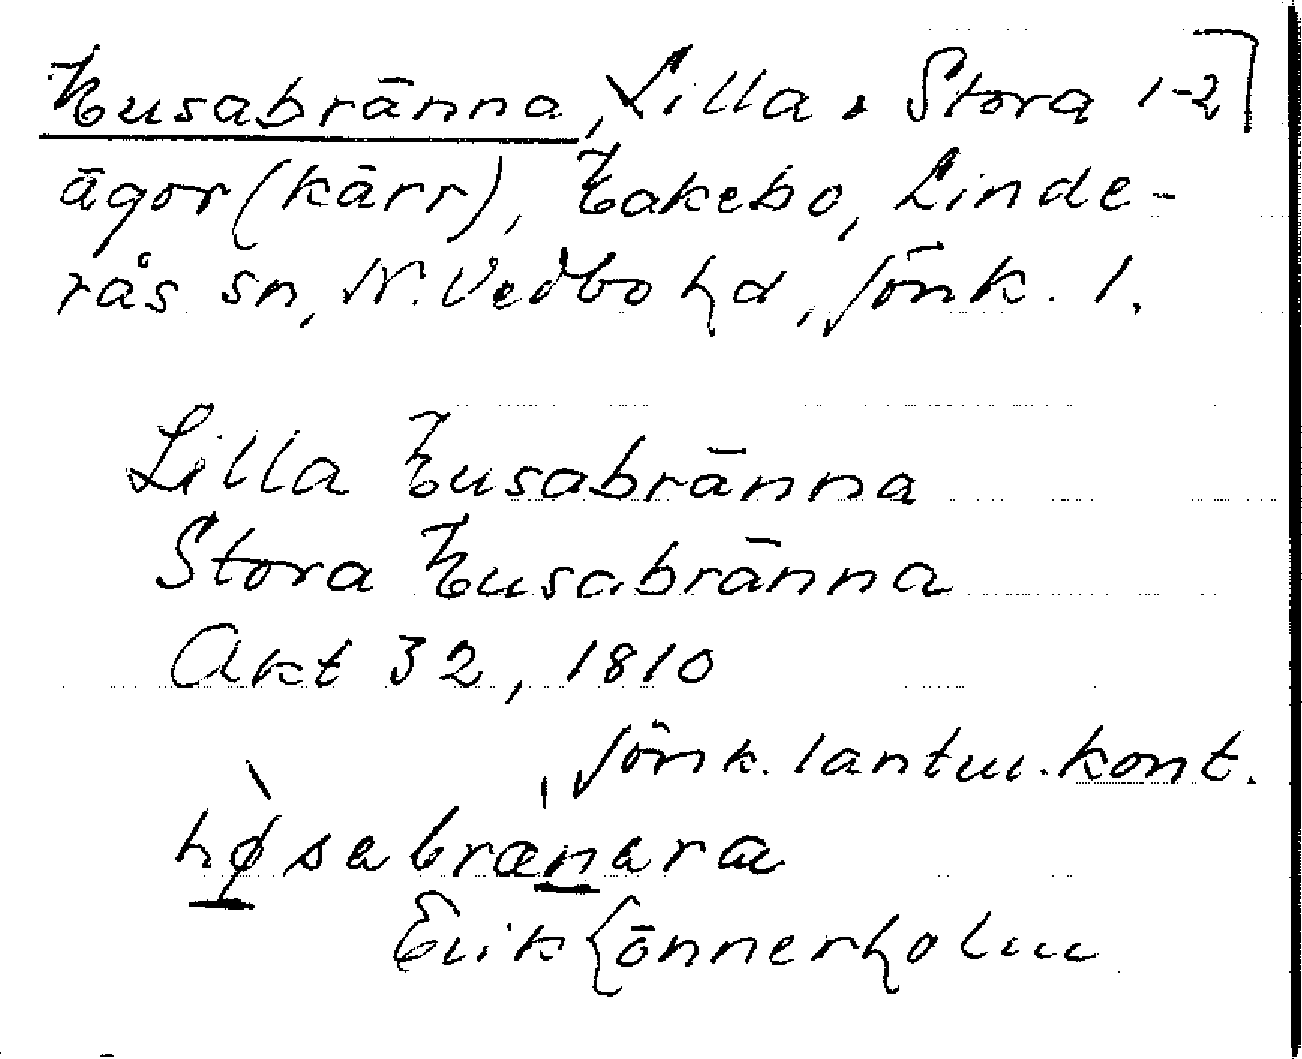 Husabränna, Lilla o Stora 1-2
ägor (kärr), Hakebo, Linde-
rås sn, N. Vedbo hd, Jönk. l.
Lilla Husabränna
Stora Husabränna
Akt 32, 1810
Jönk. lantm. kont.
Erik Lönnerholm